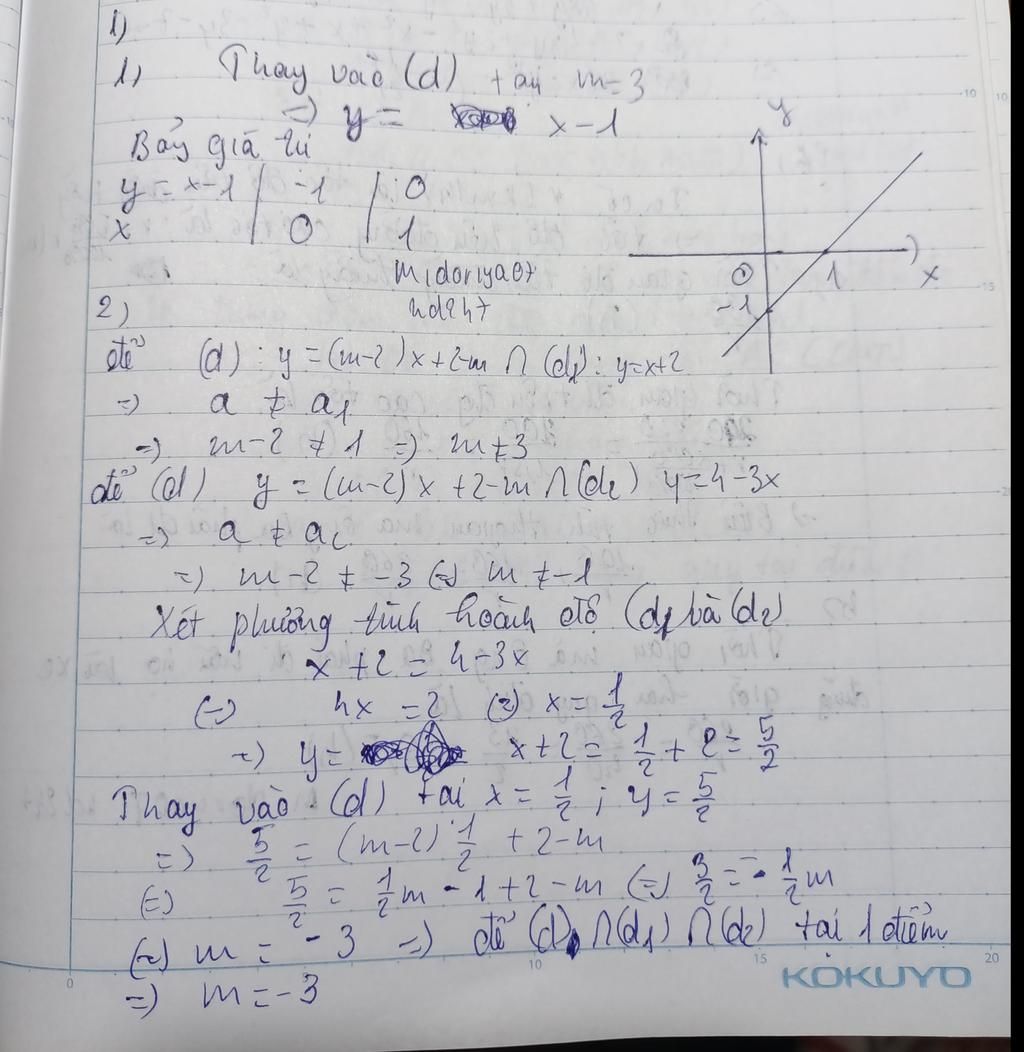 1)
1) Thay vào (d) tại m=3
=) y = x-1
Bảng giá trị
y=x-1 | -1 | 0
x | 0 | 1
midoriya07
2)
để (d): y=(m-2)x+2-m ∩ (d1): y=x+2
=) a ≠ a1
=) m-2 ≠ 1 =) m≠3
để (d) y = (m-2)x +2-m ∩(d2) y=4-3x
=) a ≠ a2
=) m-2 ≠ -3 (=) m ≠-1
Xét phương trình hoành độ (d1 và (d2)
x+2 = 4-3x
(=) 4x = 2 (=) x = 1/2
=) y = x+2 = 1/2 + 2 = 5/2
Thay vào (d) tại x = 1/2 ; y = 5/2
=) 5/2 = (m-2) 1/2 + 2-m
(=) 5/2 = 1/2m - 1+2-m (=) 3/2 = -1/2m
(=) m = -3 =) để (d) ∩(d1) ∩(d2) tại 1 điểm
=) m = -3
y
O
1
x
-1
0
10
15
20
KOKUYO